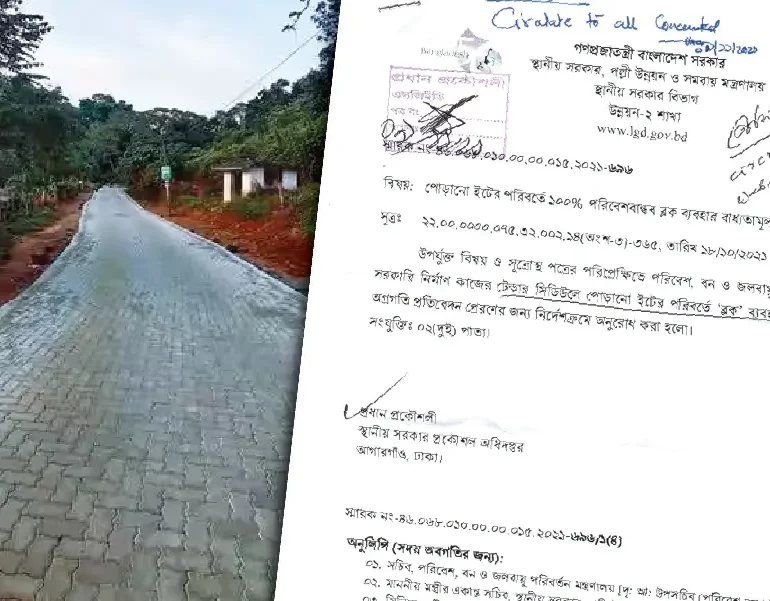 Ciralate to all Concerned
গণপ্রজাতন্ত্রী বাংলাদেশ সরকার
স্থানীয় সরকার, পল্লী উন্নয়ন ও সমবায় মন্ত্রণালয়
স্থানীয় সরকার বিভাগ
উন্নয়ন-২ শাখা
www.lgd.gov.bd
প্রধান প্রকৌশলী
এলজিইডি
স্মারক নং-৪৬.০৬৮.০১০.০০.০০.০১৫.২০২১-৬৯৬
বিষয়: পোড়ানো ইটের পরিবর্তে ১০০% পরিবেশবান্ধব ব্লক ব্যবহার বাধ্যতামূল
সূত্রঃ ২২.০০.০০০০.০৭৫.৩২.০০২.১৪(অংশ-৩)-৩৬৫, তারিখ ১৮/১০/২০২১
উপর্যুক্ত বিষয় ও সূত্রোস্থ পত্রের পরিপ্রেক্ষিতে পরিবেশ, বন ও জলবায়ু
সরকারি নির্মাণ কাজের টেন্ডার সিডিউলে পোড়ানো ইটের পরিবর্তে ‘ব্লক’ ব্যবহ
অগ্রগতি প্রতিবেদন প্রেরণের জন্য নির্দেশক্রমে অনুরোধ করা হলো।
সংযুক্তিঃ ০২(দুই) পাতা।
প্রধান প্রকৌশলী
স্থানীয় সরকার প্রকৌশল অধিদপ্তর
আগারগাঁও, ঢাকা।
স্মারক নং-৪৬.০৬৮.০১০.০০.০০.০১৫.২০২১-৬৯৬/১(৪)
অনুলিপি (সদয় অবগতির জন্য):
০১. সচিব, পরিবেশ, বন ও জলবায়ু পরিবর্তন মন্ত্রণালয় [দৃ: আ: উপসচিব (পরিবেশ
০২. মাননীয় মন্ত্রীর একান্ত সচিব, স্থানীয়